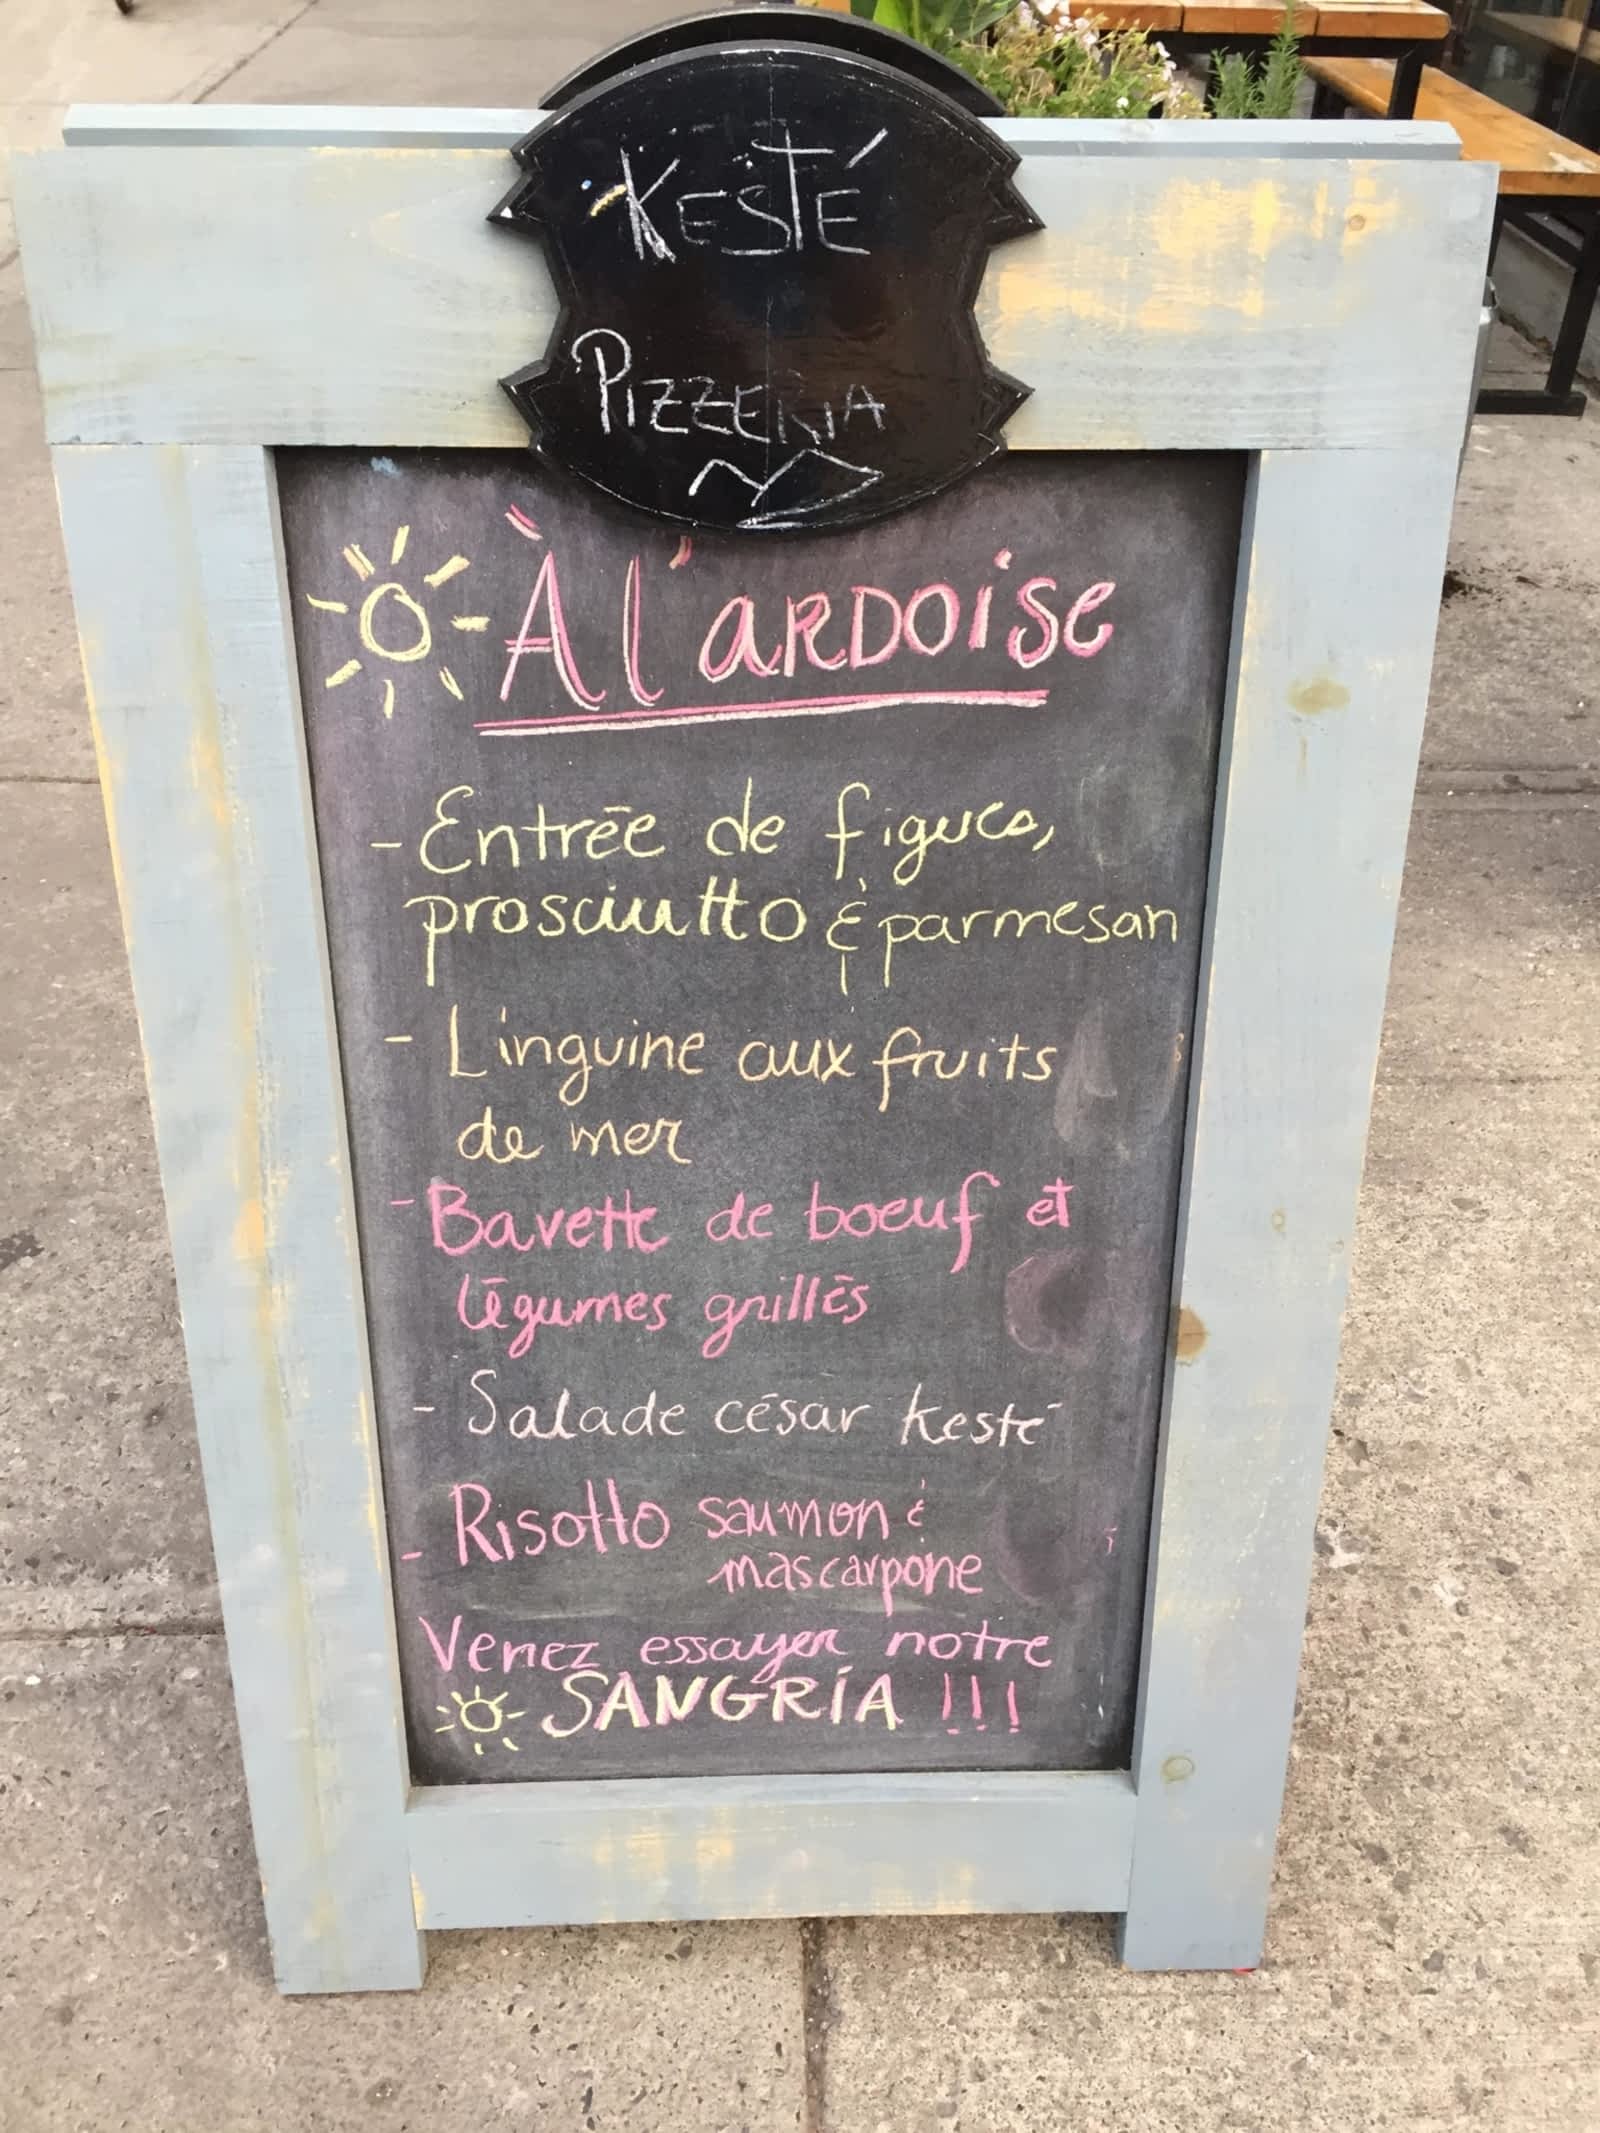 KESTÉ
PIZZERIA
À l'ARDOISE
- Entrée de figues,
prosciutto & parmesan
- Linguine aux fruits
de mer
- Bavette de boeuf et
légumes grillés
- Salade césar Kesté
- Risotto saumon &
mascarpone
Venez essayer notre
SANGRIA !!!